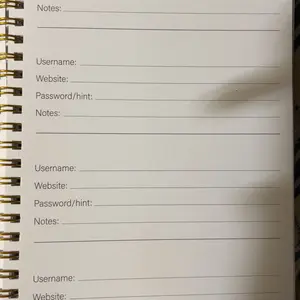 Notes:
Username:
Website:
Password/hint:
Notes:
Username:
Website:
Password/hint:
Notes:
Username:
Website: